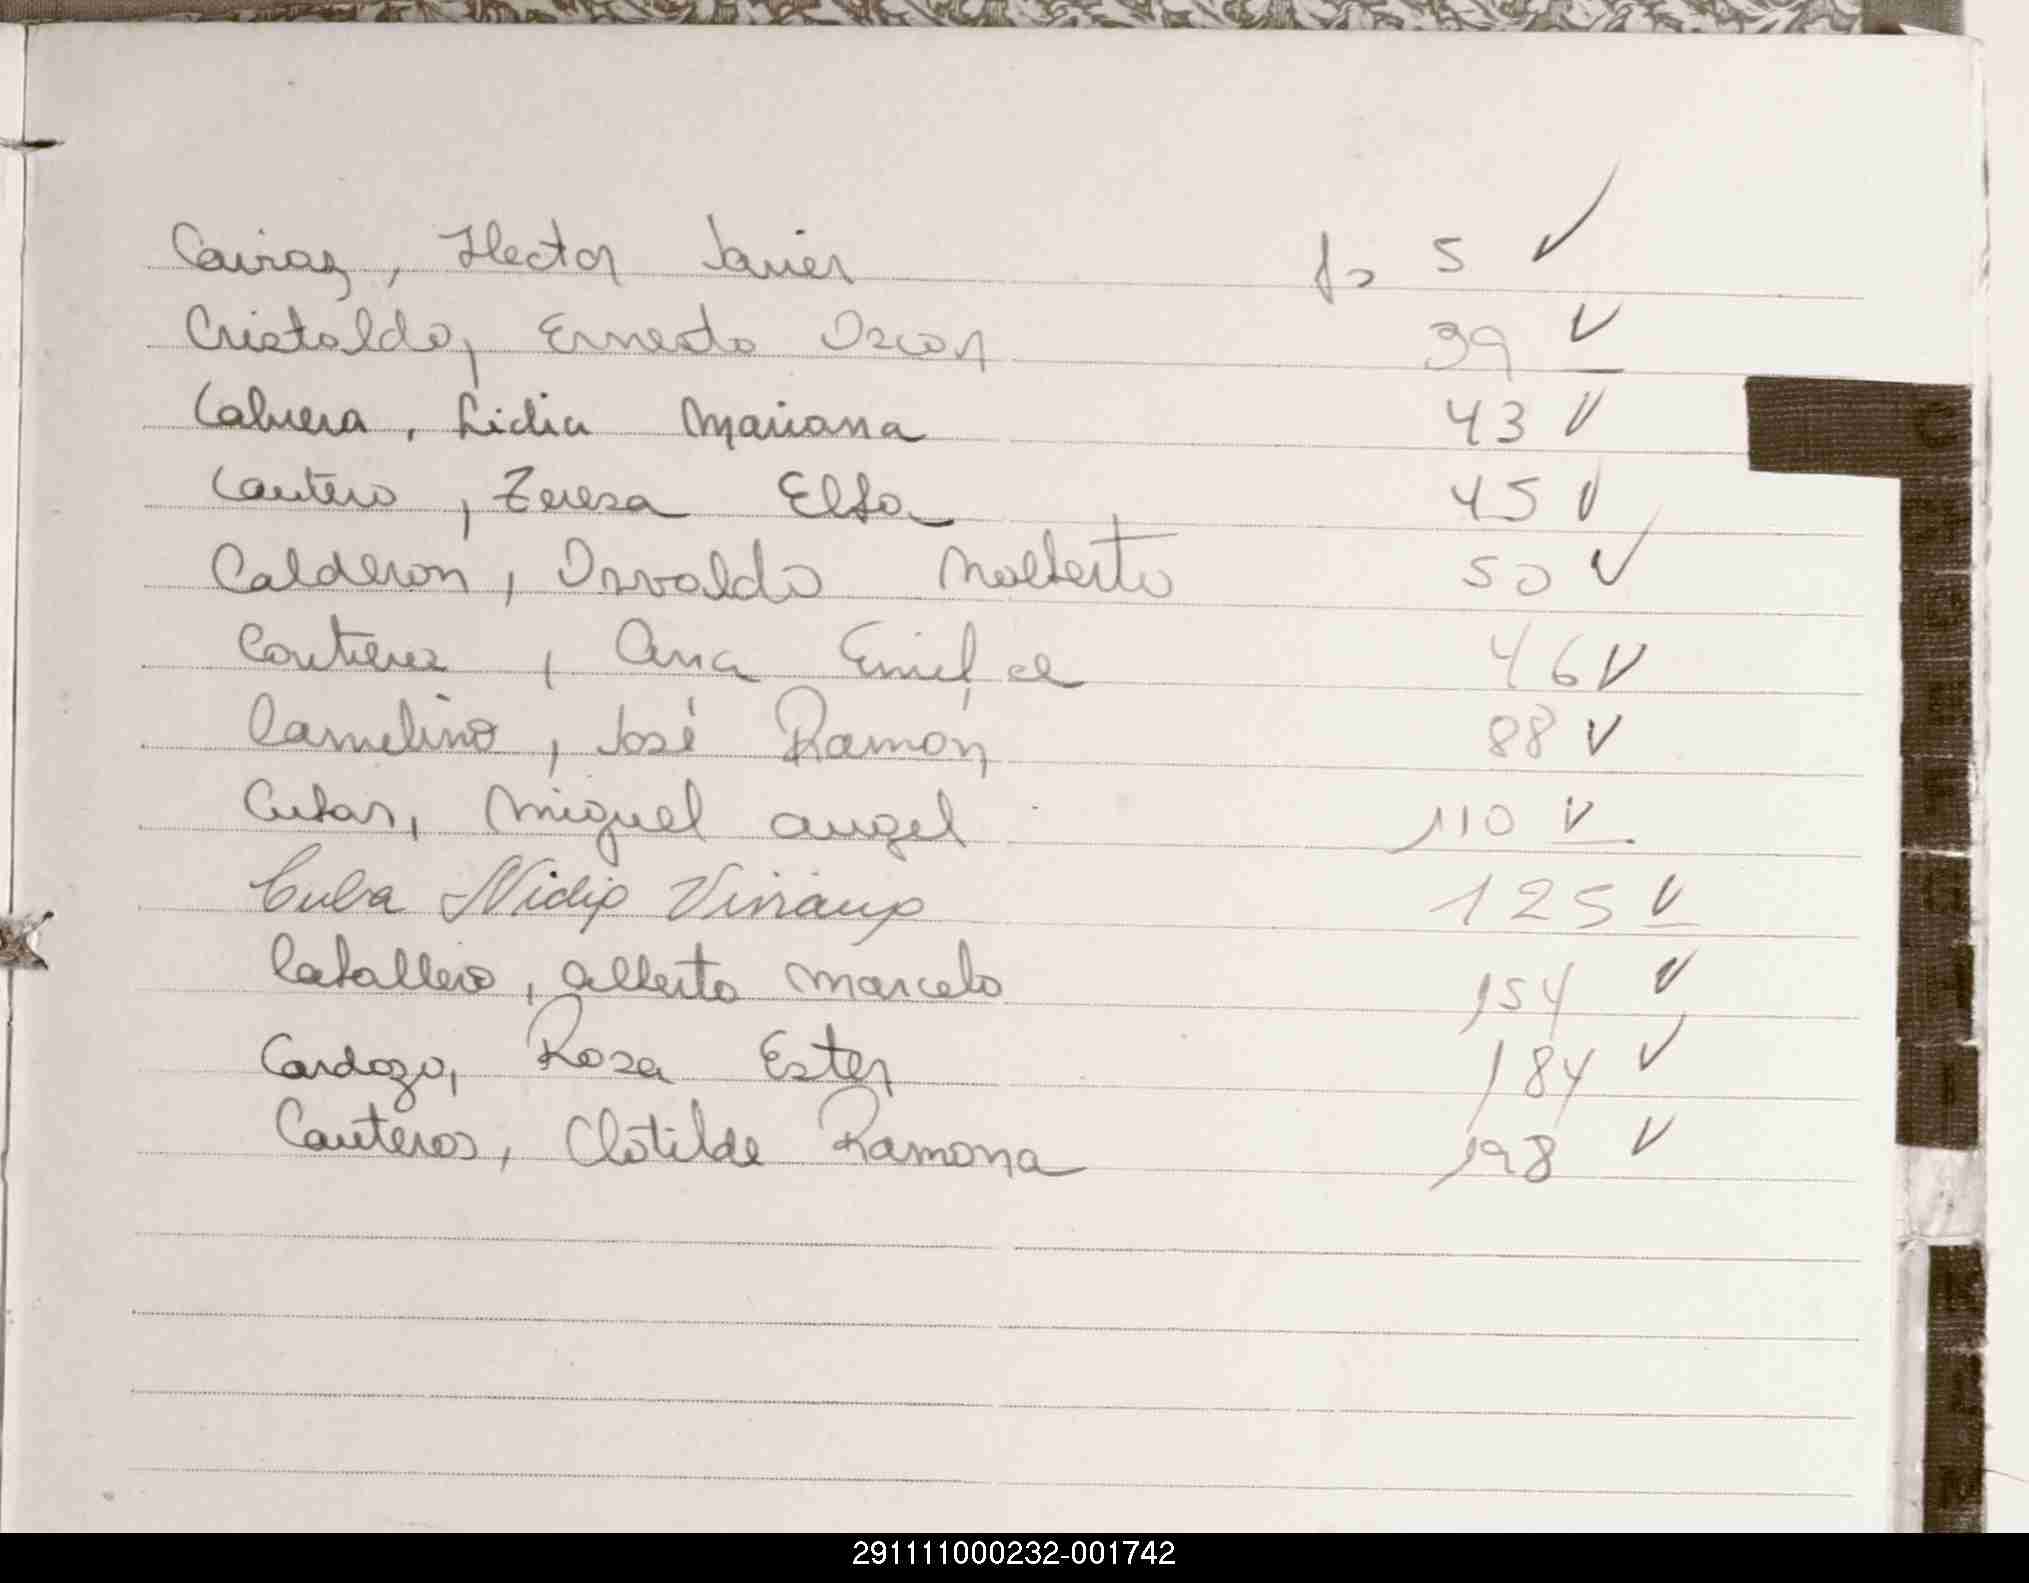 Cairaz, Hector Javier fs 5 ✓
Cristaldo, Ernesto Oscar 39 ✓
Cabrera, Lidia Mariana 43 ✓
Cantero, Teresa Elba 45 ✓
Calderon, Osvaldo Nolberto 50 ✓
Contrera, Ana 46 ✓
Camelino, José Ramón 88 ✓
Miguel Angel 110 ✓
Cuba Nidia Viviana 125 ✓
Caballero, Alberto Marcelo 154 ✓
Cardozo, Rosa Ester 184 ✓
Canteros, Clotilde Ramona 198 ✓
C
291111000232-001742